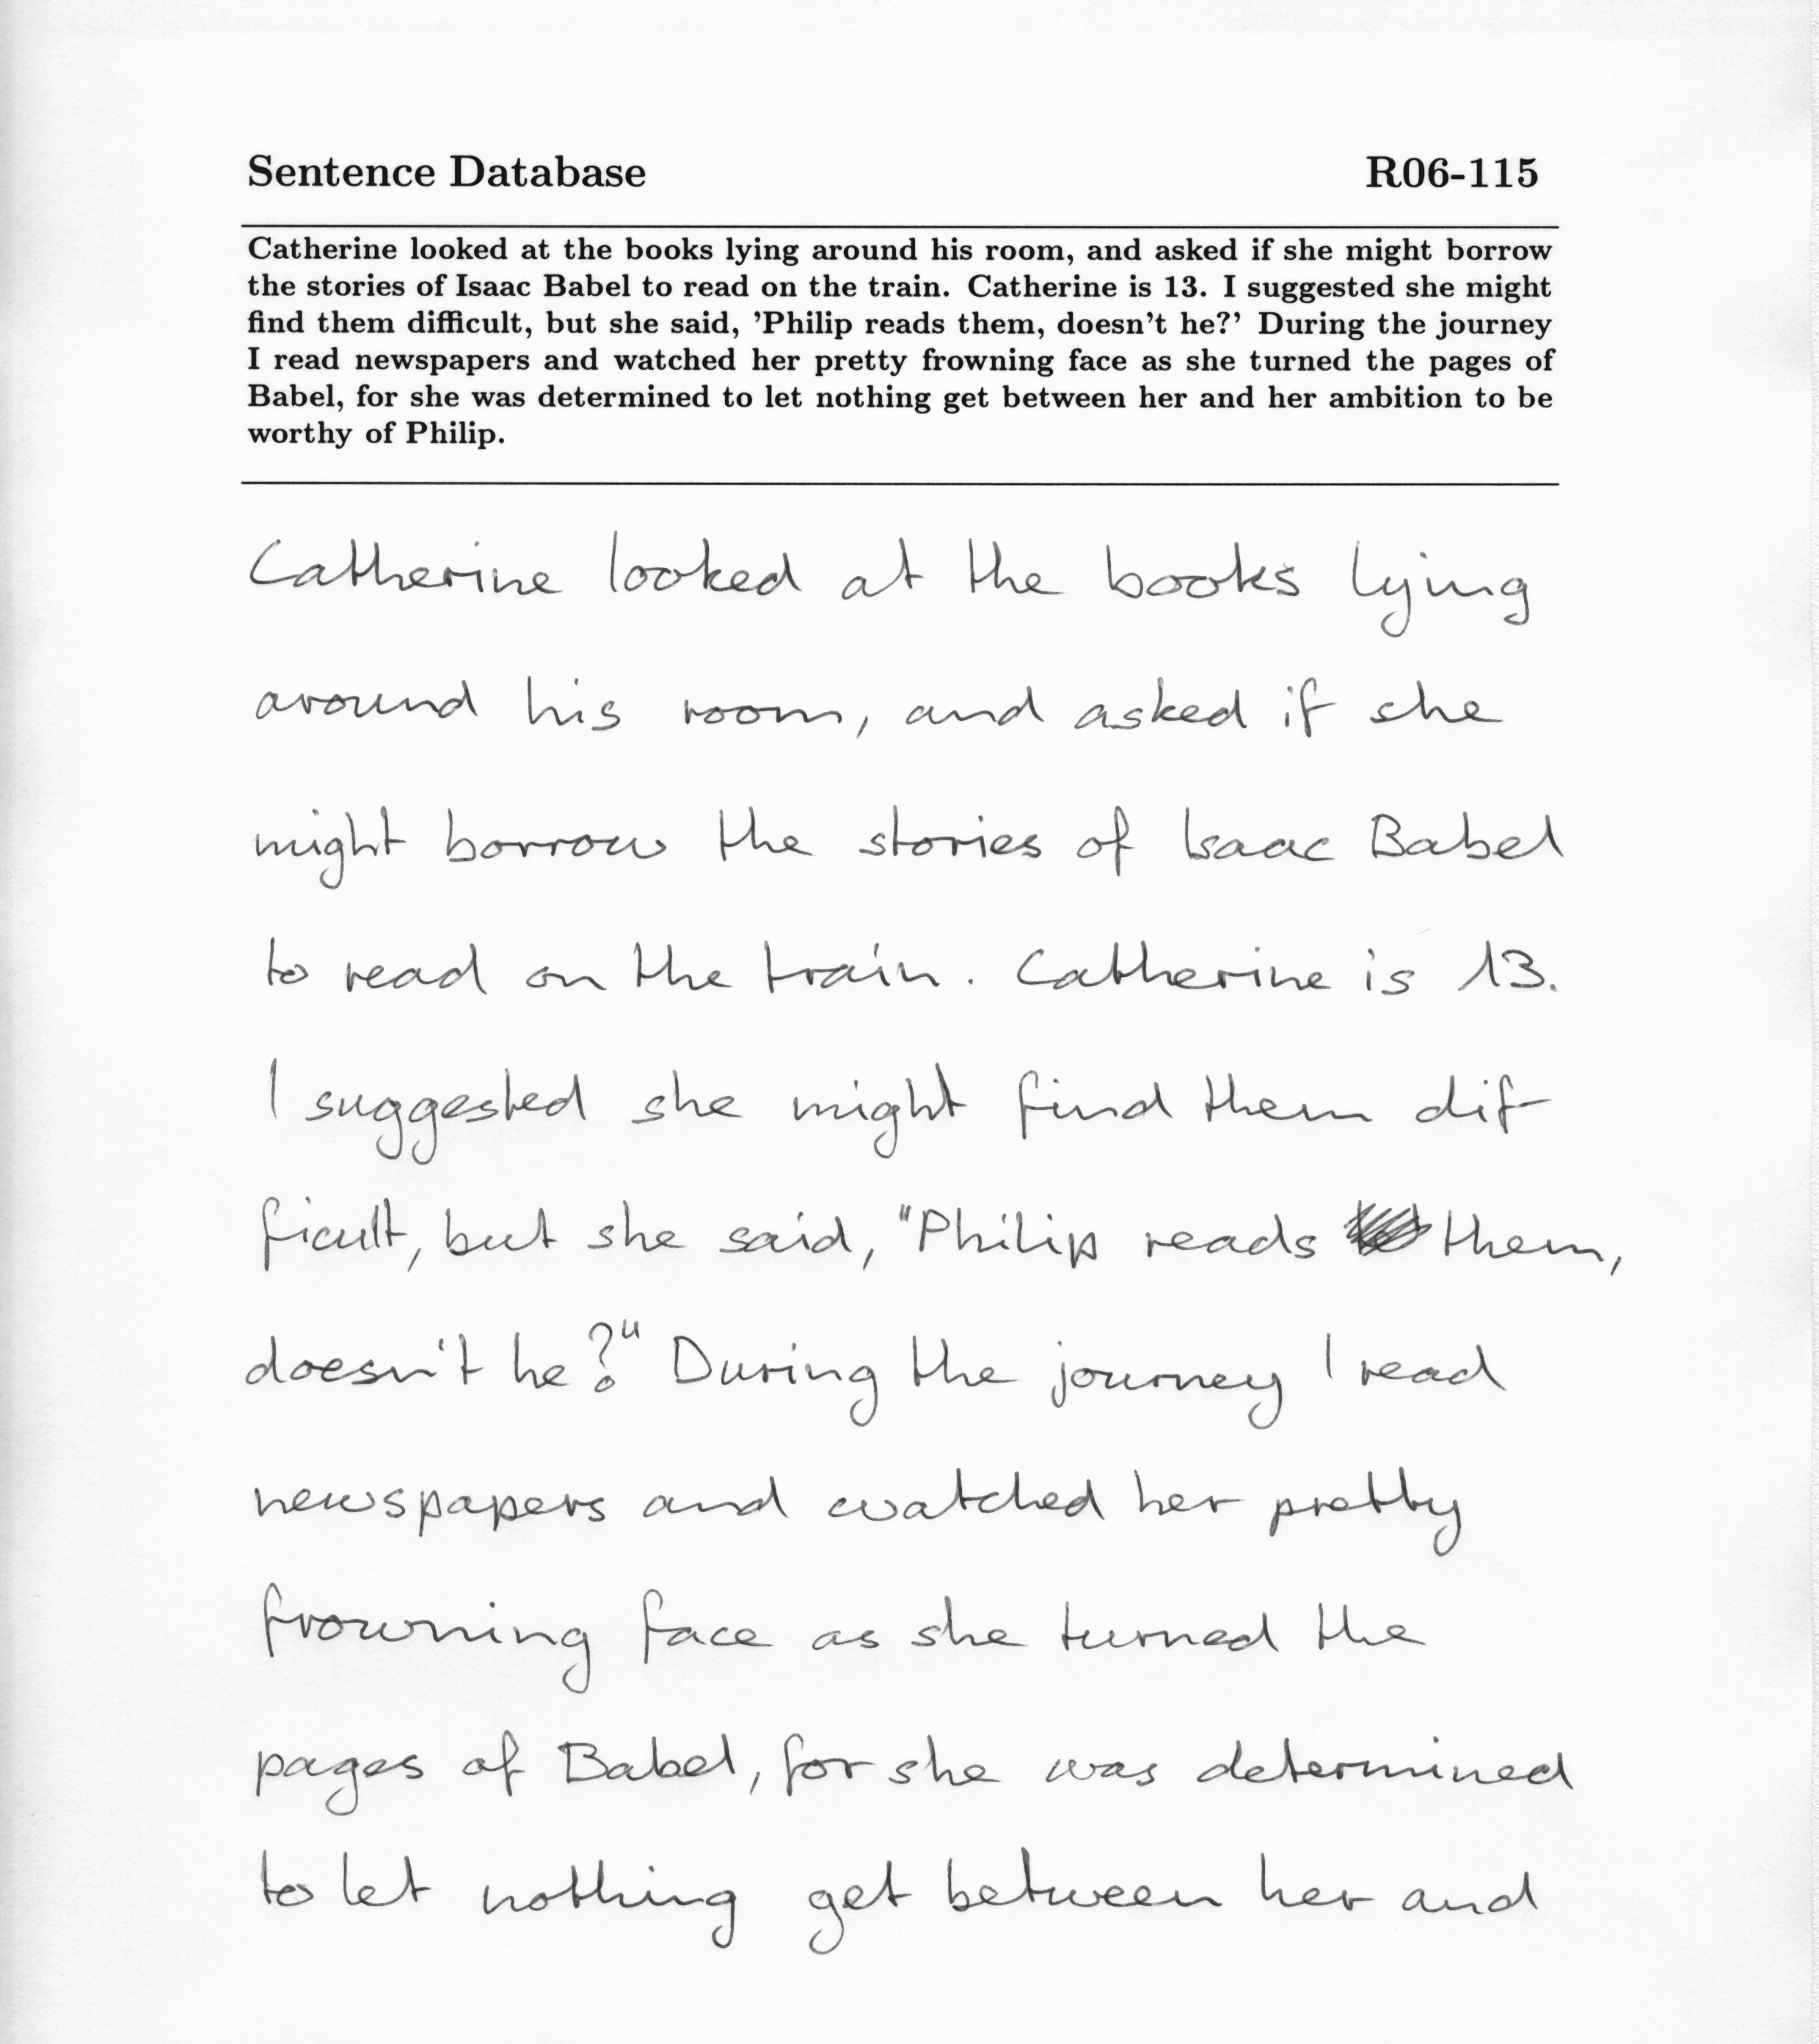 Sentence Database R06-115
Catherine looked at the books lying around his room, and asked if she might borrow
the stories of Isaac Babel to read on the train. Catherine is 13. I suggested she might
find them difficult, but she said, 'Philip reads them, doesn't he?' During the journey
I read newspapers and watched her pretty frowning face as she turned the pages of
Babel, for she was determined to let nothing get between her and her ambition to be
worthy of Philip.
Catherine looked at the books lying
around his room, and asked if she
might borrow the stories of Isaac Babel
to read on the train. Catherine is 13.
I suggested she might find them dif-
ficult, but she said, "Philip reads them,
doesn't he?" During the journey I read
newspapers and watched her pretty
frowning face as she turned the
pages of Babel, for she was determined
to let nothing get between her and